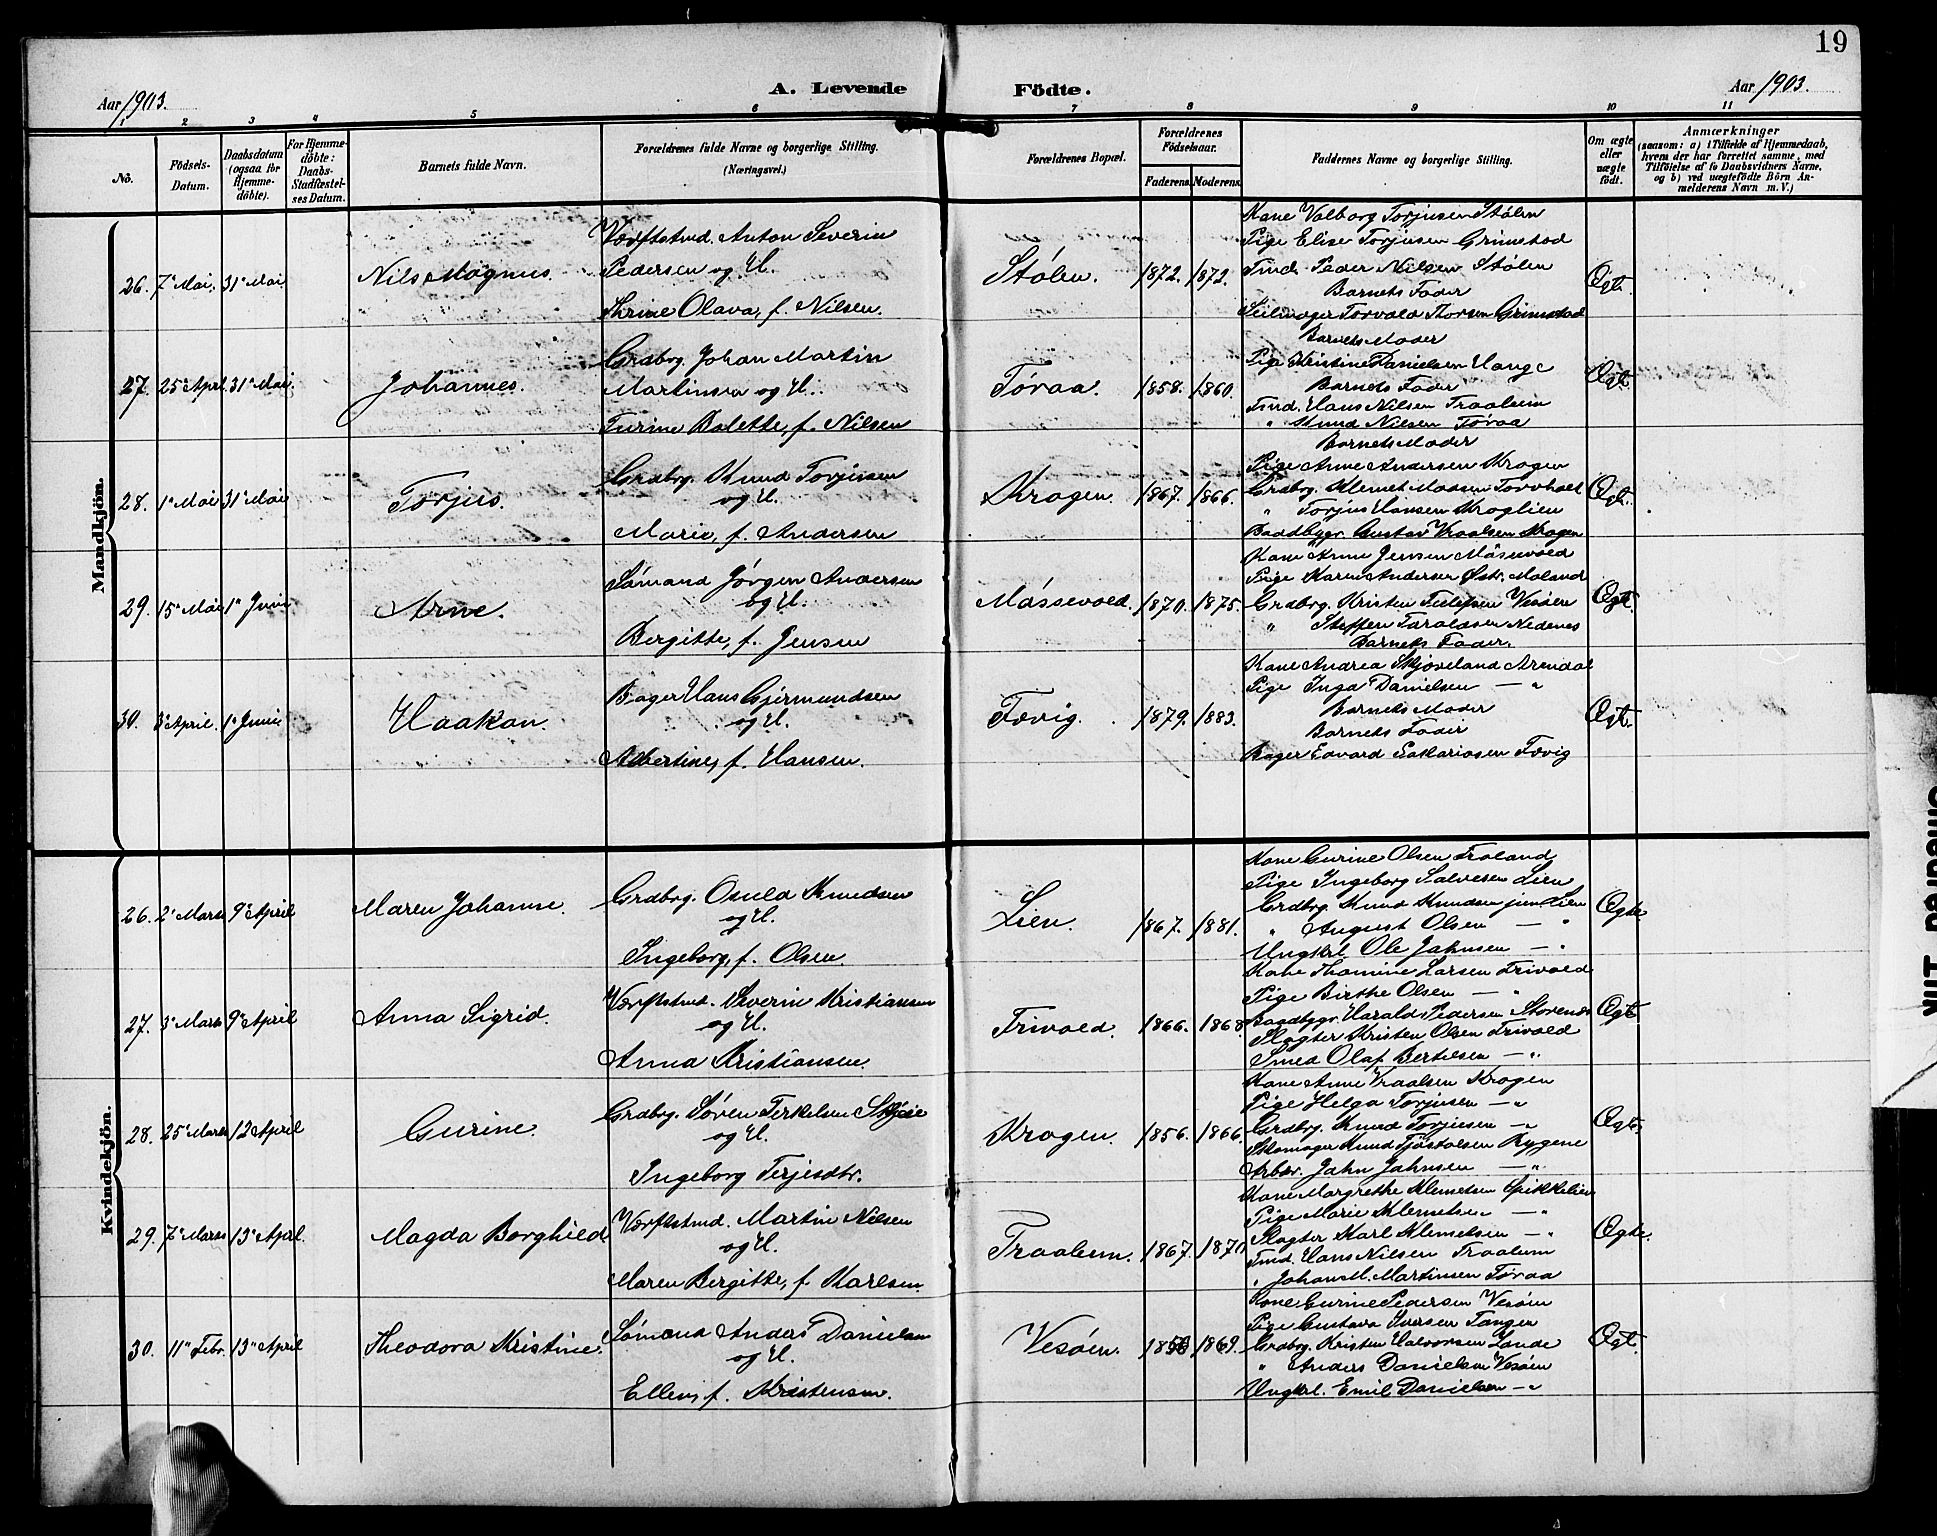 19
Aar 1903.
A. Levende Födte.
Aar 1903.
1 2 3 4 5 6 7 8 9 10 11
No.
Födsels-Datum.
Daabsdatum (ogsaa for Hjemme-döbte).
For Hjemme-döbte: Daabs-Stadfæstel-ses Datum.
Barnets fulde Navn.
Forældrenes fulde Navne og borgerlige Stilling. (Næringsvei.)
Forældrenes Bopæl.
Forældrenes Födselsaar.
Faderens. Moderens.
Faddernes Navne og borgerlige Stilling.
Om ægte eller uægte födt.
Anmærkninger
(saasom: a) i Tilfælde af Hjemmedaab, hvem der har forrettet samme, med Tilföielse af to Daabsvidners Navne, og b) ved uægtefödte Börn An-melderens Navn m. V.)
Mandkjön.
26. 7de Mai. 31te Mai. Nils Magnus.
Værftstmd. Anton Severin
Pedersen og H.
Thrine Olava, f. Nilsen.
Stølen. 1872. 1872.
Kone Valborg Torjusen Stølen
Pige Elise Torjusen Grimstad
Tmd. Peder Nilsen Stølen
Barnets Fader
Seilmager Torvald Thorsen Grimstad
Ægte.
27. 25de April 31te Mai. Johannes.
Grdbrg. Johan Martin
Martinsen og H.
Turine Bolette, f. Nilsen
Tøraa. 1858. 1860.
Barnets Moder
Pige Kristine Danielsen Hauge
Barnets Fader
Tmd. Hans Nilsen Traalum
" Knud Nilsen Tøraa
Ægte
28. 1ste Mai 31te Mai Torjus.
Grdbrg. Knud Torjusen
og H.
Marie, f. Andersen
Krogen. 1867. 1866.
Barnets Moder
Pige Anne Andersen Krogen
Grdbrg. Klemet Madsen Torvholt
" Torjus Hansen Kroglien
Baadbygr. Gustav Vraalsen Krogen
Ægte.
29. 15de Mai 1ste Juni Arne.
Sømand Jørgen Andersen
og H.
Bergitte, f. Jensen
Måssevold. 1870. 1875.
Kone Anne Jensen Måssevold
Pige Karen Andersen Østr. Moland
Grdbrg. Kristen Tellefsen Vesøen
" Steffen Taraldsen Nedenes
Barnets Fader.
Ægte.
30. 3die April. 1ste Juni Haakon.
Bager Hans Gjermundsen
og H.
Albertine, f. Hansen.
Fævig. 1879. 1883.
Kone Andrea Skjøveland Arendal
Pige Inga Danielsen — "
Barnets Moder
Barnets Fader
Bager Edvard Sakariasen Fævig
Ægte.
Kvindekjön.
26. 2den Marts 9de April Maren Johanne.
Grdbrg. Osuld Knudsen
og H.
Ingeborg, f. Olsen.
Lien. 1867. 1881.
Kone Gurine Olsen Froland
Pige Ingeborg Salvesen Lien
Grdbrg. Knud Knudsen jun Lien
" August Olsen — "
Ungkrl. Ole Jahnsen — "
Ægte
27. 3die Marts 9de April Anna Sigrid.
Værftstmd. Severin Kristiansen
og H.
Anna Kristiansen.
Frivold. 1866. 1868
Kone Thomine Larsen Frivold
Pige Birthe Olsen — "
Baadbygr. Harald Pedersen Storenes
Slagter Kristen Olsen Frivold
Smed Olaf Bertelsen — "
Ægte
28. 25de Marts 12te April Gurine.
Grdbrg. Søren Terkelsen Skjeie
og H.
Ingeborg Terjesdtr.
Krogen. 1856. 1866.
Kone Anne Vraalsen Krogen
Pige Helga Torjusen — "
Grdbrg. Knud Torjusen — "
Skomager Knud Tjøstolsen Rygene
Arbdr. Jahn Jahnsen — "
Ægte.
29. 7de Marts 13de April. Magda Borghild.
Værftstmd. Martin Nilsen
og H.
Maren Bergitte, f. Karlsen.
Traalum. 1867. 1870
Kone Margrethe Klemetsen Spikkelien
Pige Marie Klemetsen — "
Slagter Karl Klemetsen — "
Tmd. Hans Nilsen Traalum
" Johan M. Martinsen Tøraa
Ægte.
30. 11te Febr. 13de April Theodora Kristine.
Sømand Anders Danielsen
og H.
Ellen, f. Kristensen.
Vesøen. 1869.
Kone Gurine Pedersen Vesøen
Pige Gustava Iversen Tanger
Grdbrg. Kristen Halvorsen Lande
" Anders Danielsen Vesøen
Ungkrl. Emil Danielsen — "
Ægte.